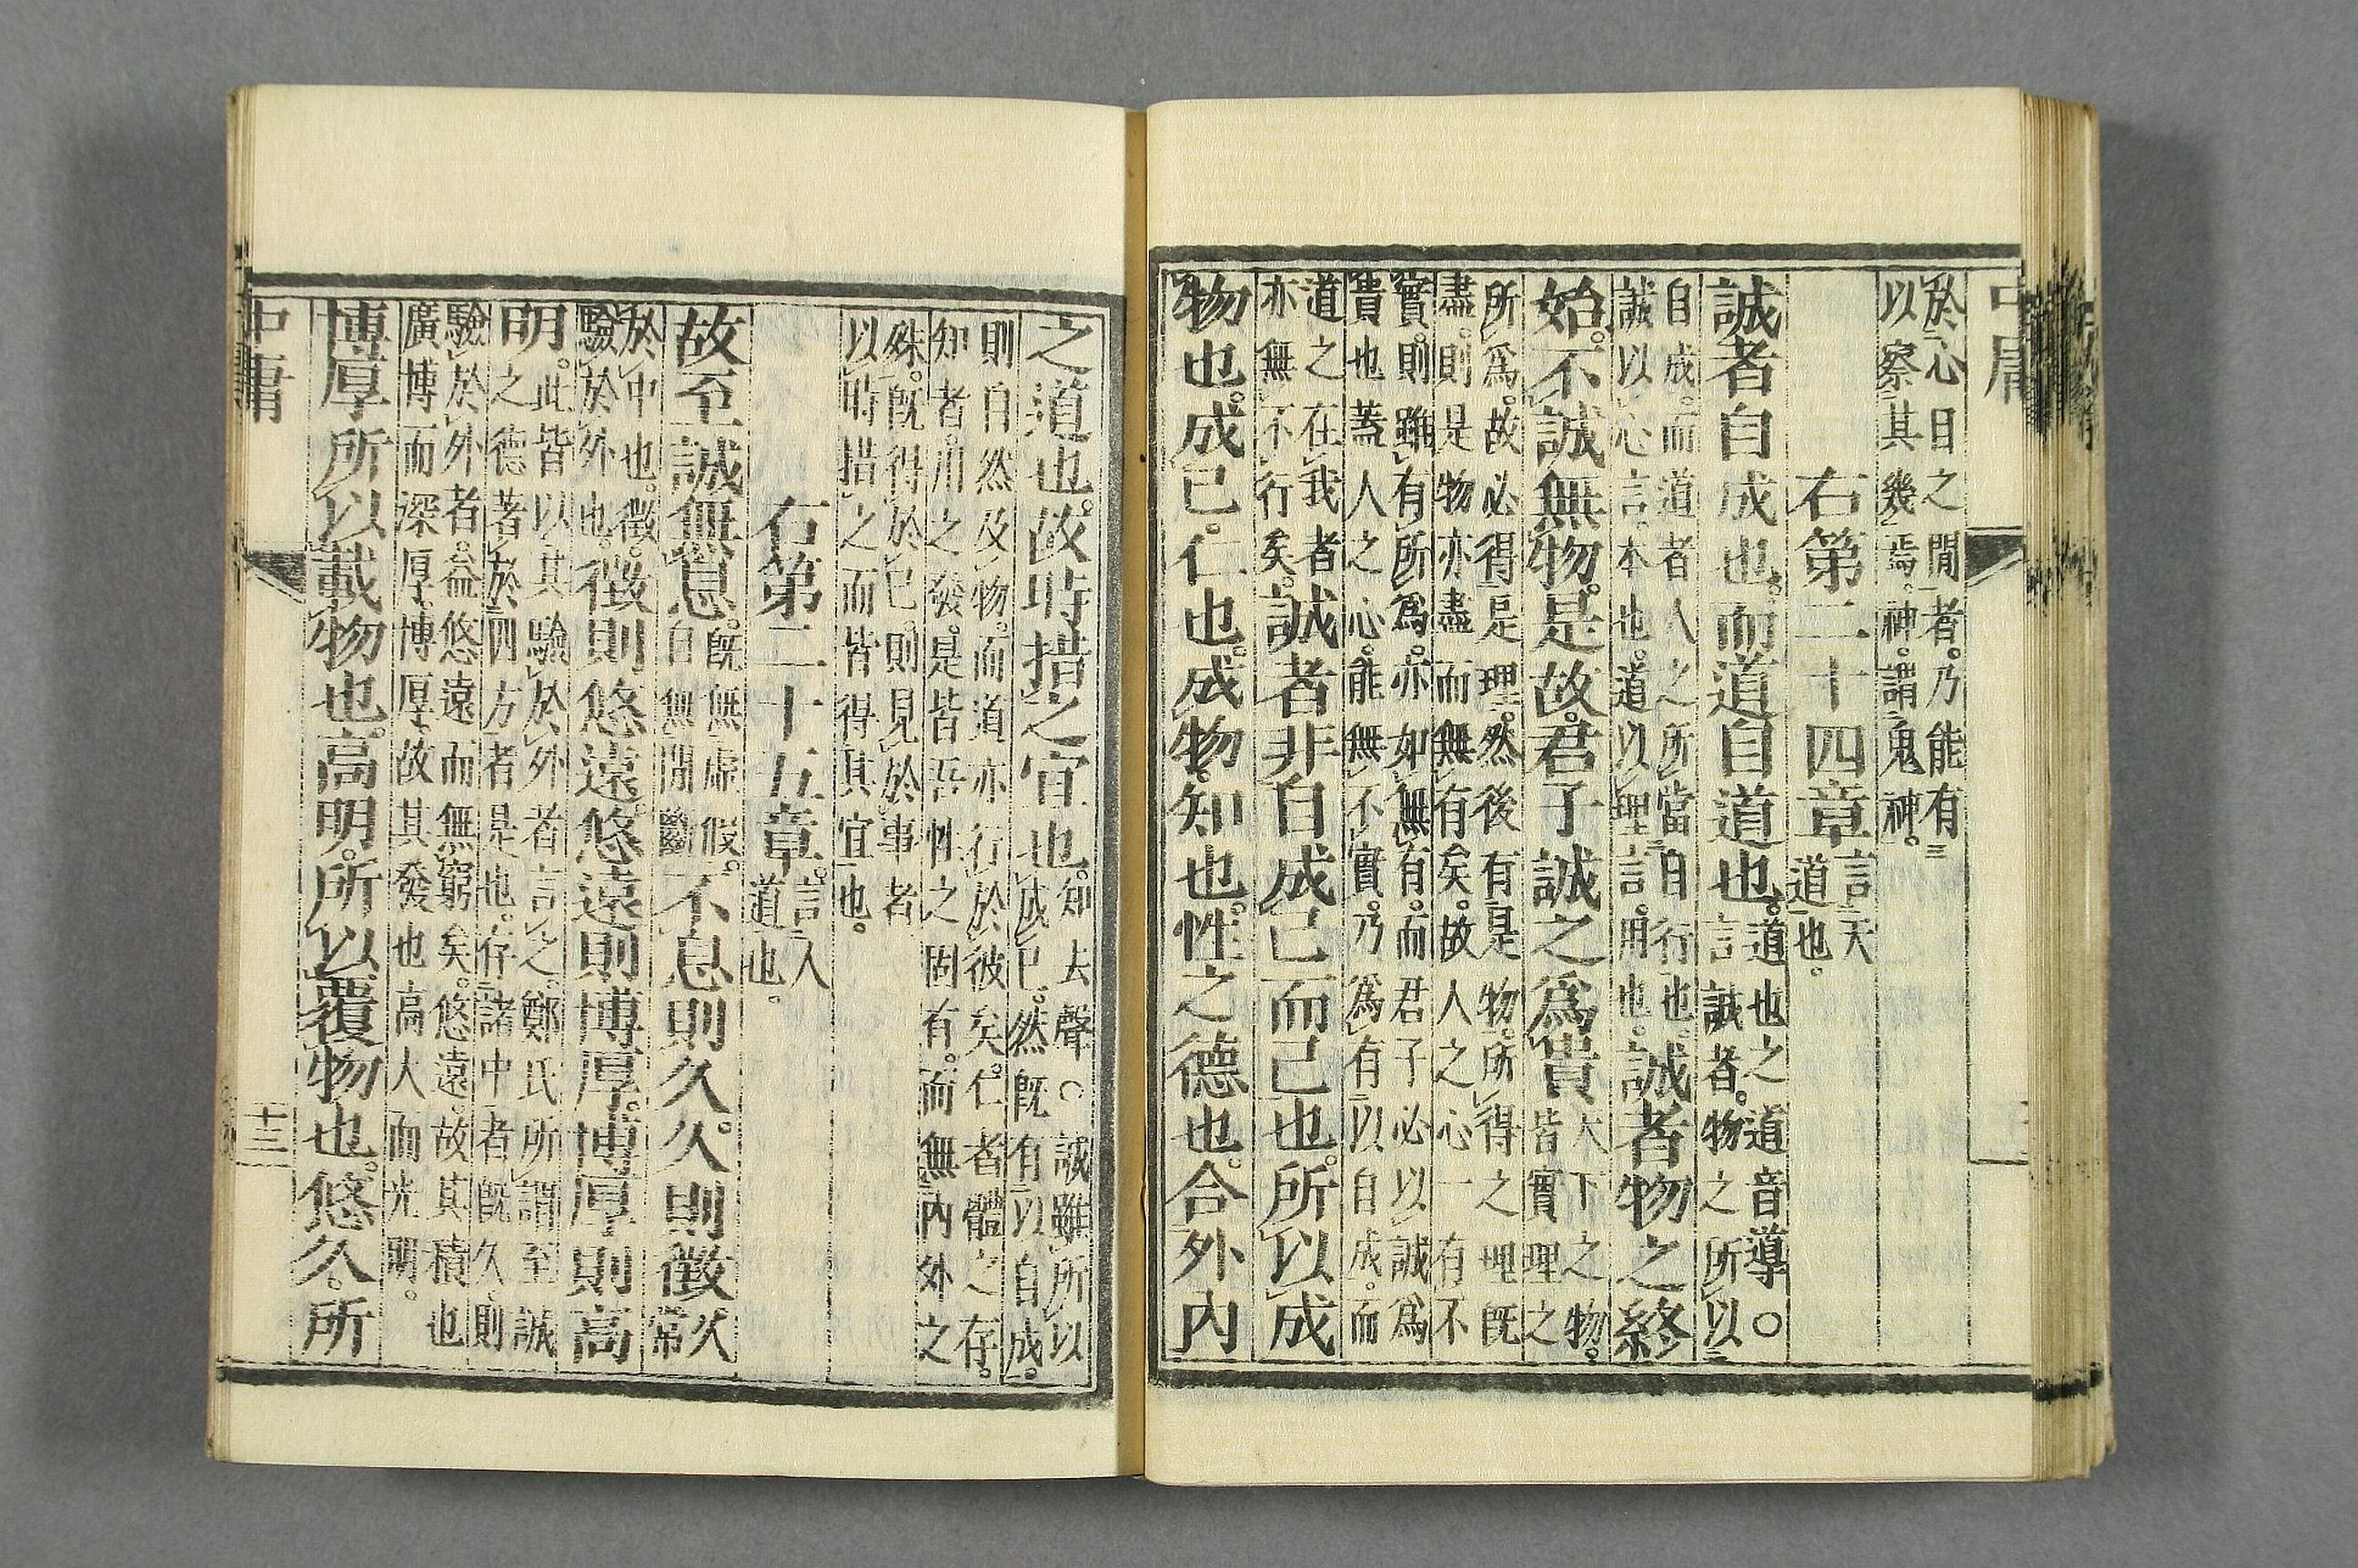 中庸
於心目之閒者。乃能有
以察其幾焉。神。謂鬼神。
右第二十四章言天
道也。
誠者自成也。而道自道也。道也之道音導。○
言誠者。物之所以
自成。而道者人之所當自行也。
誠以心言。本也。道以理言。用也。誠者物之終
始。不誠無物。是故君子誠之爲貴天下之物。
皆實理之
所爲。故必得是理。然後有是物。所得之理既
盡。則是物亦盡而無有矣。故人之心一有不
實。則雖有所爲。亦如無有。而君子必以誠爲
貴也蓋人之心。能無不實。乃爲有以自成。而
道之在我者
亦無不行矣。誠者非自成己而己也。所以成
物也。成己。仁也。成物。知也。性之德也。合外內
之道也。故時措之宜也。知去聲○誠雖所以
成己。然既有以自成。
則自然及物。而道亦行於彼矣。仁者體之存。
知者。用之發。是皆吾性之固有。而無內外之
殊。既得於己。則見於事者
以時措之而皆得其宜也。
右第二十五章。言人
道也。
故至誠無息。既無虛假。
自無閒斷不息則久。久則徵久
常
於中也。徵。
驗於外也。徵則悠遠。悠遠則博厚。博厚則高
明。此皆以其驗於外者言之。鄭氏所謂至誠
之德著於四方者是也。存諸中者既久。則
驗於外者。益悠遠而無窮矣。悠遠。故其積也
廣博而深厚。博厚。故其發也高大而光明。
博厚所以載物也。高明。所以覆物也。悠久。所
中庸
十三